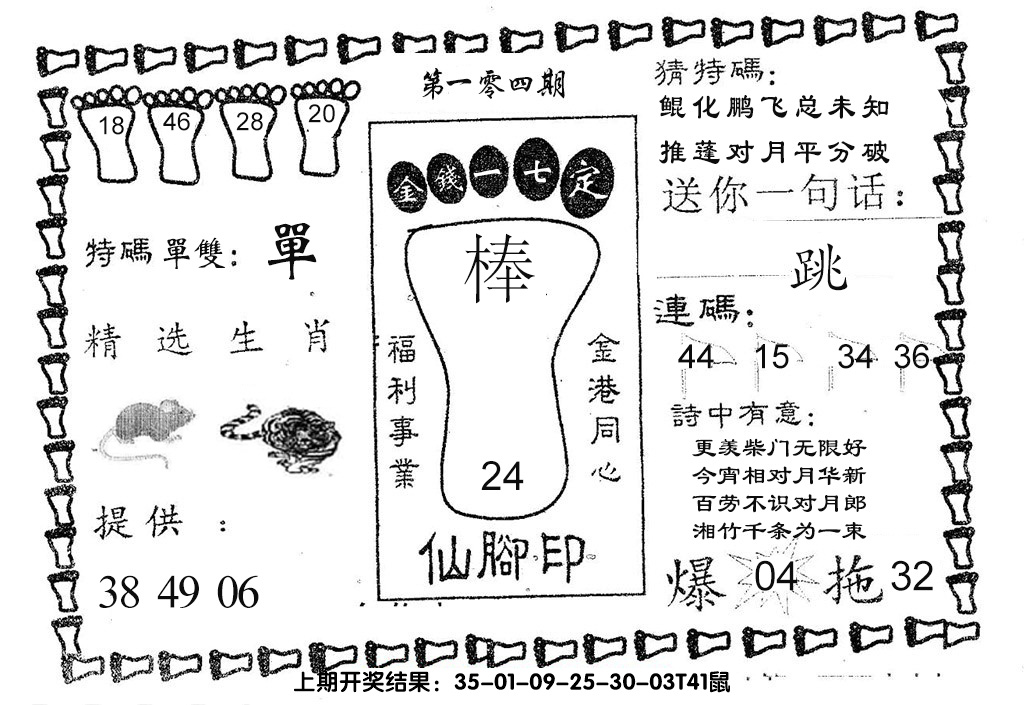 第一零四期
18 46 28 20
特碼單雙：單
精选生肖
提供：
38 49 06
金錢一七定
棒
福利事業
金港同心
24
仙腳印
猜特碼：
鲲化鹏飞总未知
推蓬对月平分破
送你一句话：
跳
連碼：
44 15 34 36
詩中有意：
更羡柴门无限好
今宵相对月华新
百劳不识对月郎
湘竹千条为一束
爆 04 拖 32
上期开奖结果：35-01-09-25-30-03T41鼠